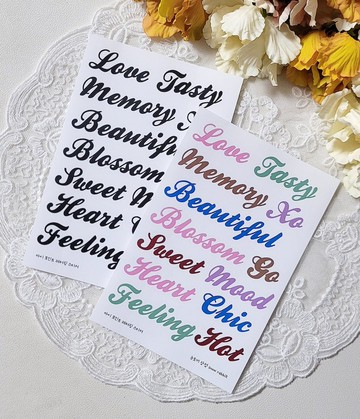 Love Tasty
Memory Xo
Beautiful
Blossom
Sweet M
Heart
Feeling
Love Tasty
Memory Xo
Beautiful
Blossom Go
Sweet Mood
Heart Chic
Feeling Hot